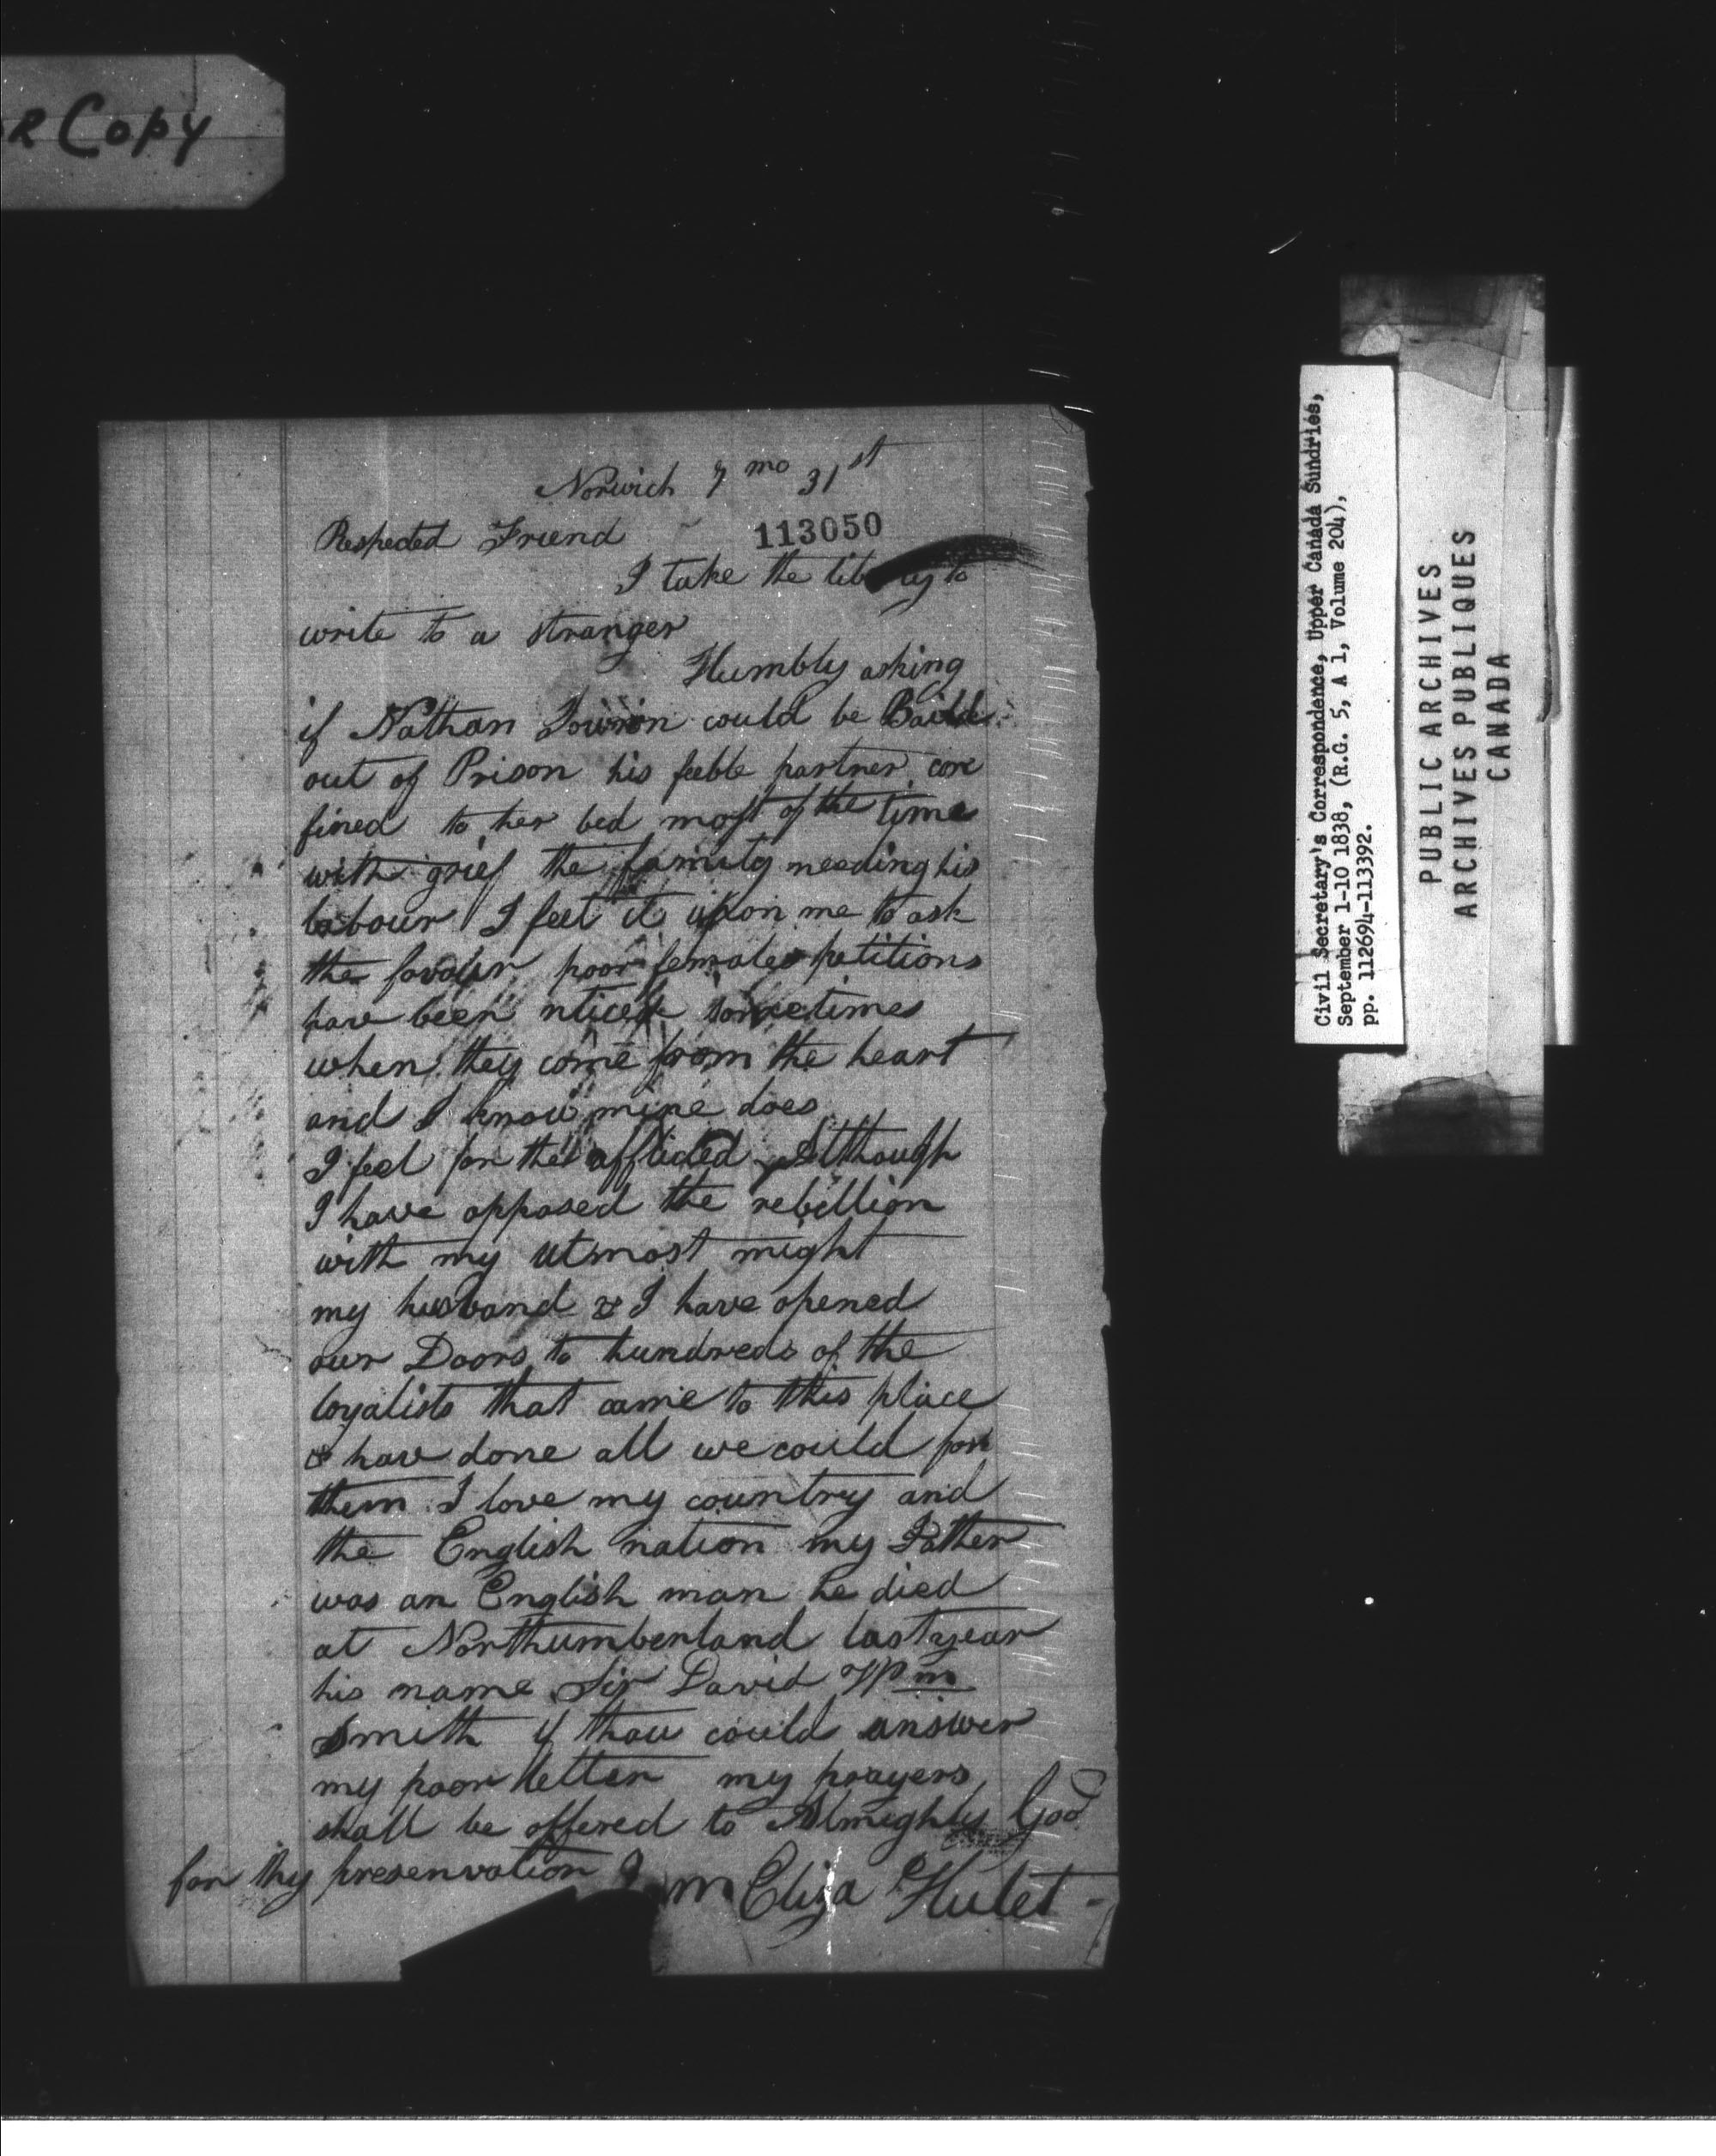 R Copy
Norwich 7 mo 31st
Respected Friend
113050
I take the liberty to
write to a stranger
Humbly asking
if Nathan could be Baild
out of Prison his feeble partner con
fined to her bed most of the time
with grief the family needing his
labour I feel it upon me to ask
the favour poor females petitions
have been nticed sometimes
when they come from the heart
and I know mine does
I feel for the afflicted Although
I have opposed the rebellion
with my utmost might
my husband & I have opened
our Doors to hundreds of the
loyalists that came to this place
& have done all we could for
them I love my country and
the English nation my Father
was an English man he died
at Northumberland last year
his name Sir David Wm
Smith if thou could answer
my poor letter my prayers
shall be offered to Almighty God
for thy preservation I am Eliza Hulet
Civil Secretary's Correspondence, Upper Canada Sundries,
September 1-10 1838, (R.G. 5, A 1, Volume 204),
pp. 112694-113392.
PUBLIC ARCHIVES
ARCHIVES PUBLIQUES
CANADA